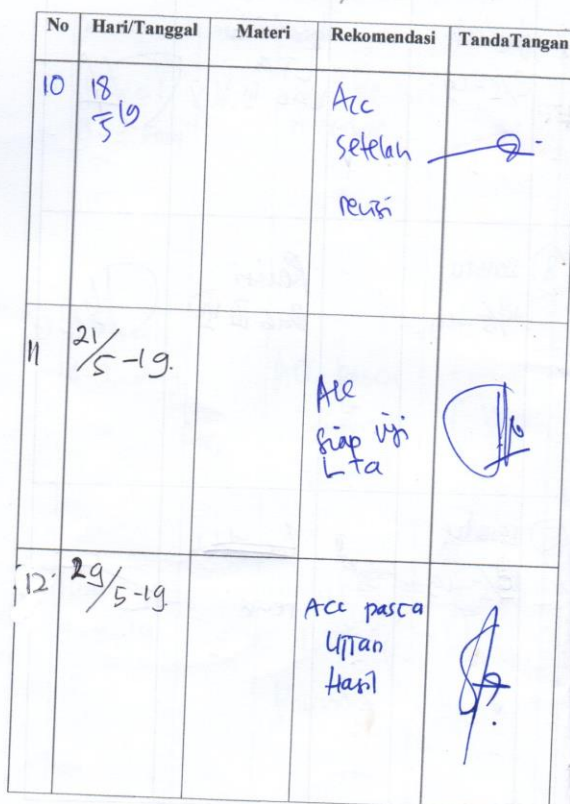 No Hari/Tanggal Materi Rekomendasi TandaTangan
10 18/5 19 Acc
setelah
revisi
11 21/5-19. Acc
siap uji
LTA
12. 29/5-19 Acc pasca
Ujian
Hasil